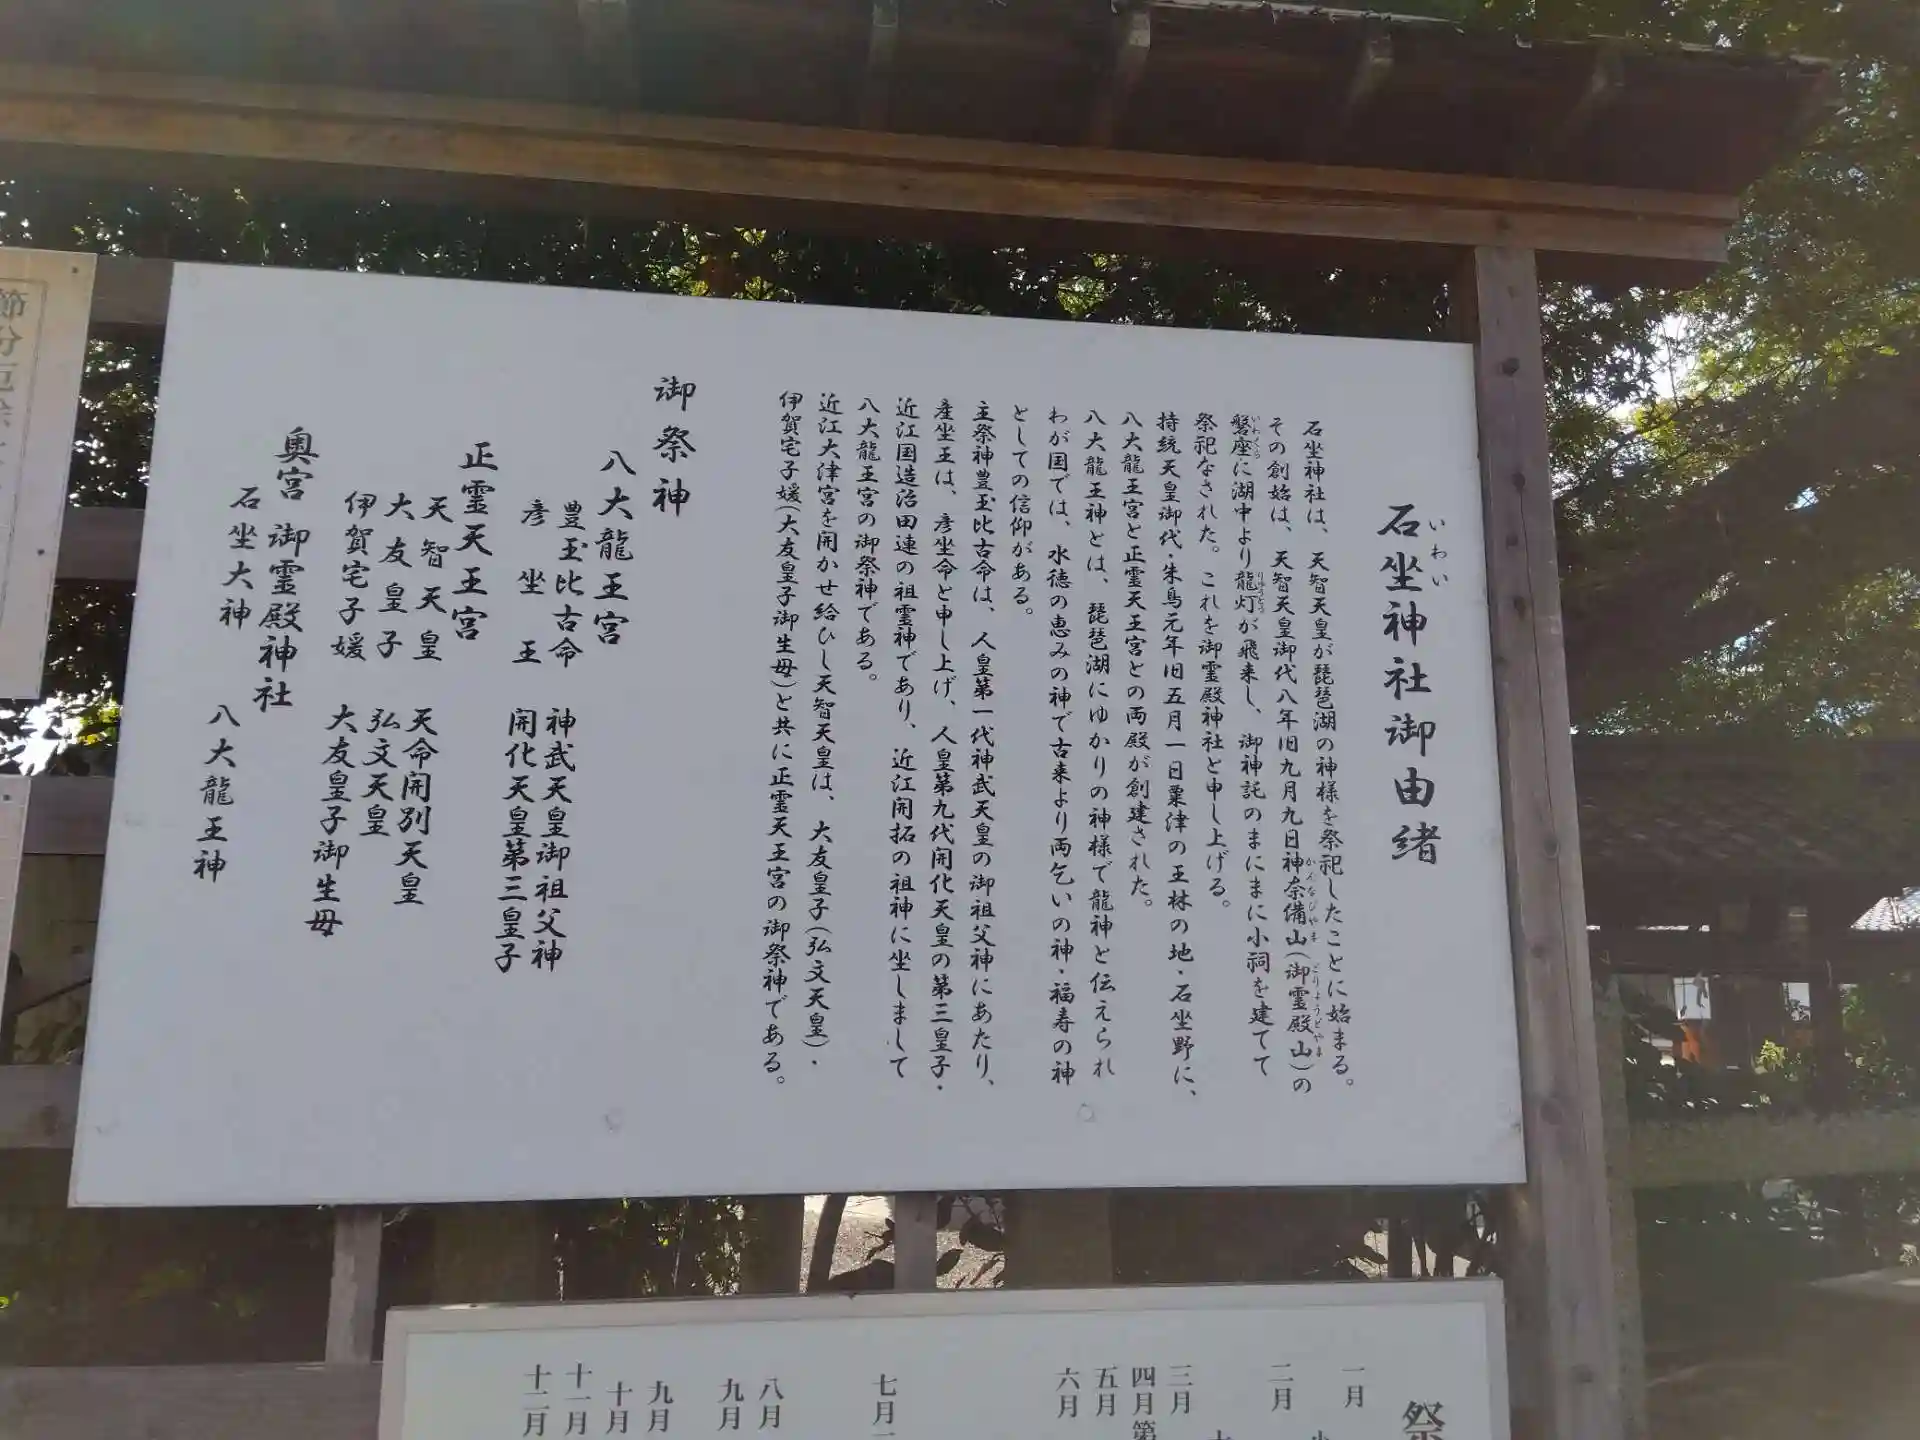 石坐神社御由緒
いわい
石坐神社は、天智天皇が琵琶湖の神様を祭祀したことに始まる。
その創始は、天智天皇御代八年旧九月九日神奈備山(御霊殿山)の
かんなびやま
ごりょうどやま
磐座に湖中より龍灯が飛来し、御神託のまにまに小祠を建てて
いわくら
りゅうとう
祭祀なされた。これを御霊殿神社と申し上げる。
持統天皇御代・朱鳥元年旧五月一日粟津の王林の地・石坐野に、
八大龍王宮と正霊天王宮との両殿が創建された。
八大龍王神とは、琵琶湖にゆかりの神様で龍神と伝えられ
わが国では、水徳の恵みの神で古来より雨乞いの神・福寿の神
としての信仰がある。
主祭神豊玉比古命は、人皇第一代神武天皇の御祖父神にあたり、
彦坐王は、彦坐命と申し上げ、人皇第九代開化天皇の第三皇子・
近江国造治田連の祖霊神であり、近江開拓の祖神に坐しまして
八大龍王宮の御祭神である。
近江大津宮を開かせ給ひし天智天皇は、大友皇子(弘文天皇)・
伊賀宅子媛(大友皇子御生母)と共に正霊天王宮の御祭神である。
御祭神
八大龍王宮
豊玉比古命 神武天皇御祖父神
彦坐王 開化天皇第三皇子
正霊天王宮
天智天皇 天命開別天皇
大友皇子 弘文天皇
伊賀宅子媛 大友皇子御生母
奥宮 御霊殿神社
石坐大神 八大龍王神
節分厄除
祭
一月
二月
三月
四月第
五月
六月
七月
八月
九月
九月
十月
十一月
十二月